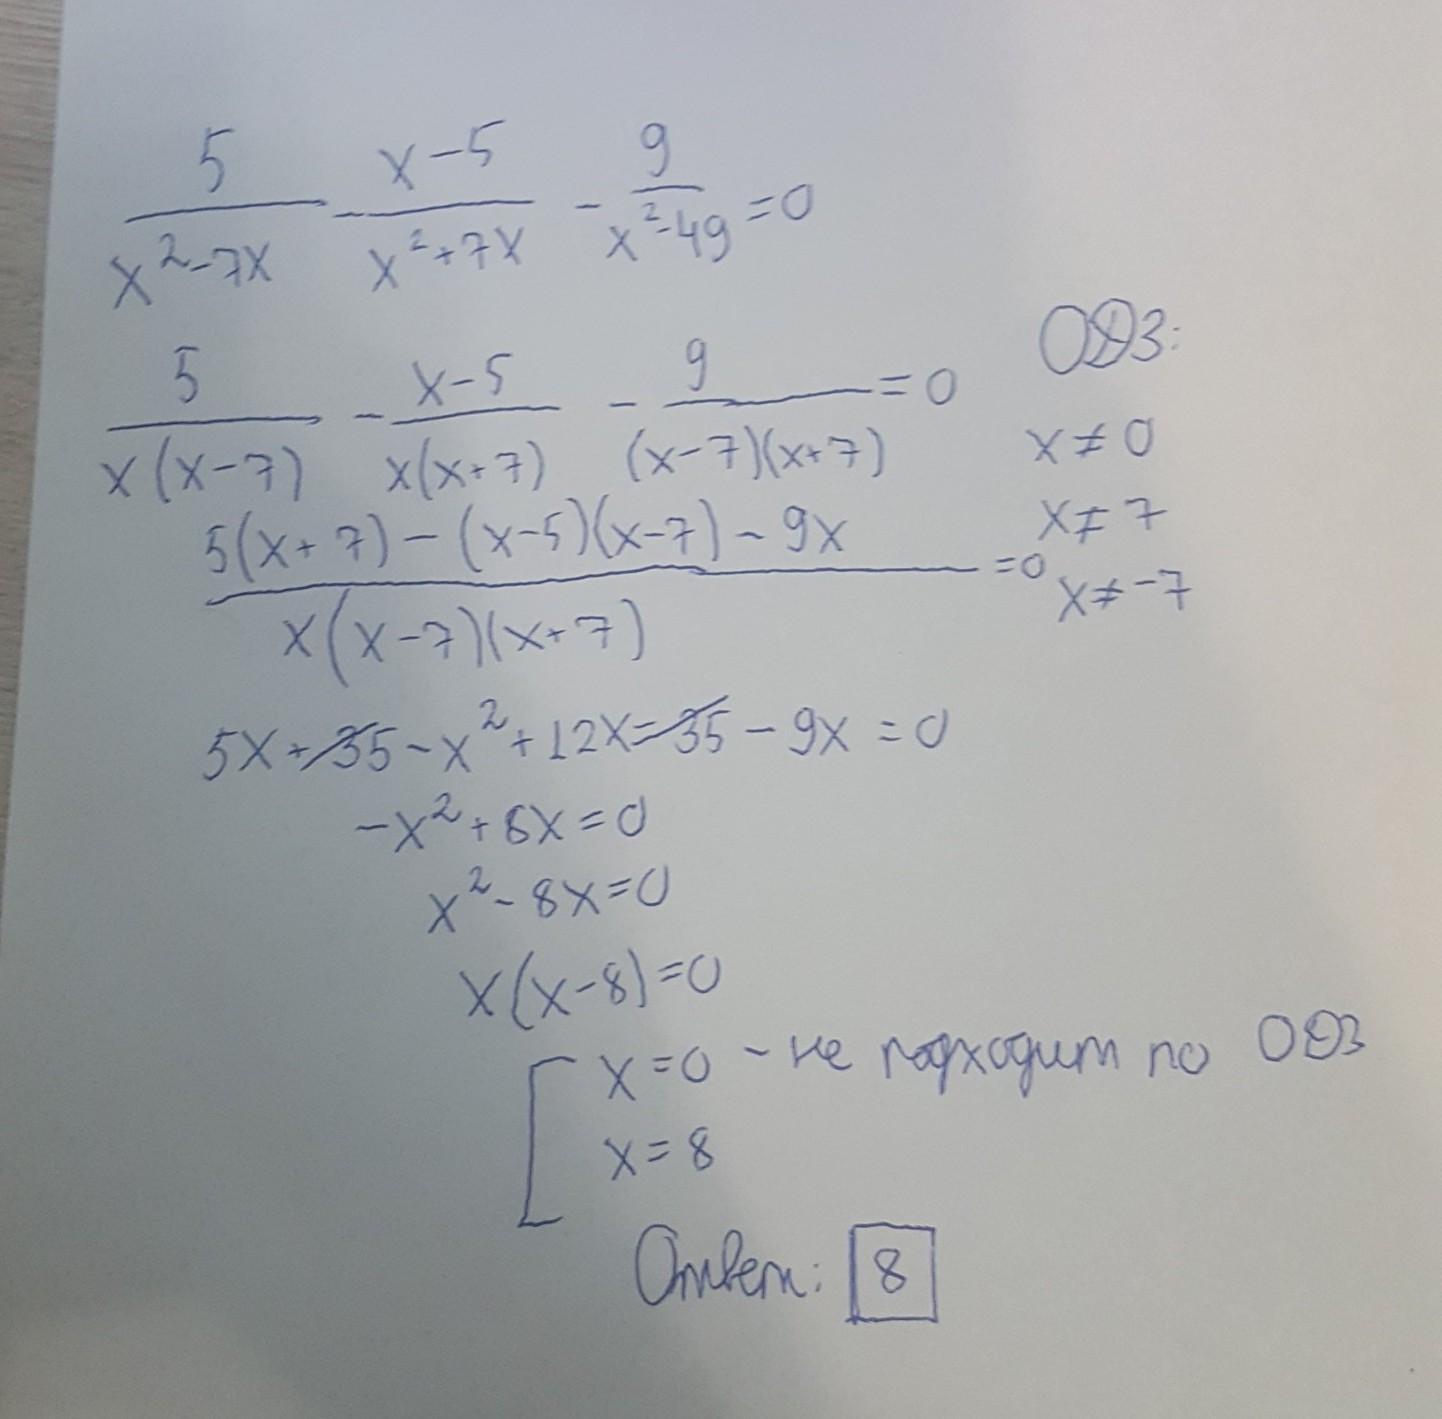 5/(x²-7x) - (x-5)/(x²+7x) - 9/(x²-49) = 0
5/(x(x-7)) - (x-5)/(x(x+7)) - 9/((x-7)(x+7)) = 0
ОДЗ:
x≠0
x≠7
x≠-7
(5(x+7)-(x-5)(x-7)-9x)/(x(x-7)(x+7)) = 0
5x+35-x²+12x-35-9x=0
-x²+8x=0
x²-8x=0
x(x-8)=0
[ x=0 - не подходит по ОДЗ
x=8
Ответ: 8